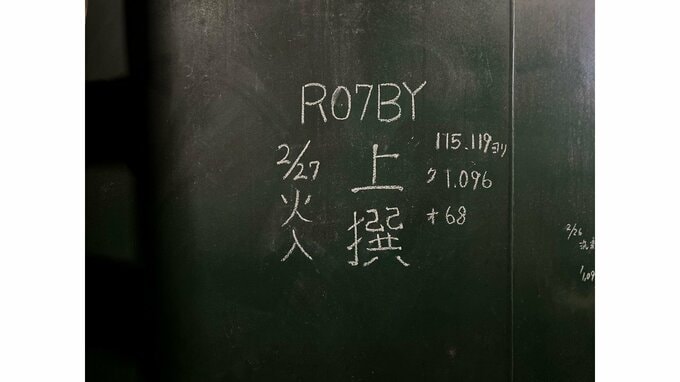 R07BY
上撰
2/27
火入
115、119ヨリ
ク1.096
オ68
2/26